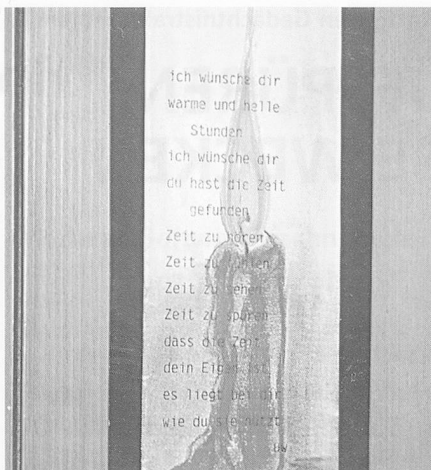 ich wünsche dir
warme und helle
Stunden
ich wünsche dir
du hast die Zeit
gefunden
Zeit zu hören
Zeit zu fühlen
Zeit zu sehen
Zeit zu spüren
dass die Zeit
dein Eigen ist
es liegt bei dir
wie du sie nützt
BW